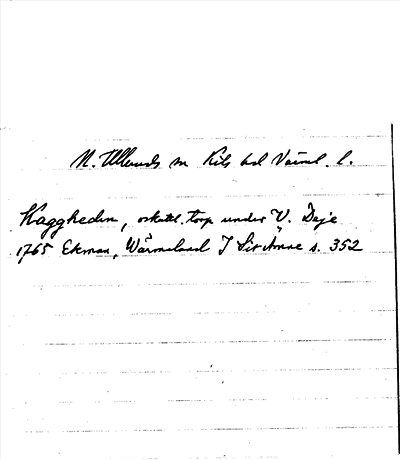 N. Ulleruds sn Kils hd Värml. l.
Kaggheden, oskatt. torp under V. Deje
1765 Ekman, Wärmeland I Sit Ämne s. 352